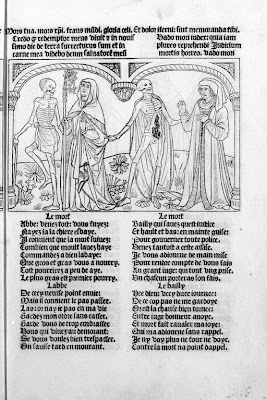 Mors tua. mors xpi. fraus mūdi. gloria celi. Et dolor iferni: sint memoranda tibi.
Credo q̄ redemptor meus viuit z in nouissimo die de terra surrecturus sum et in
carne mea videbo deum saluatorē meū
Vado mori iudex: quia iam
plures reprehendi Iudicium
mortis horreo. vado mori
Le mort
Abbe: venez tost: vous fuyez:
Nayez ia la chiere esbaye.
Il conuient que la mort suiuez:
Combien que moult lauez haye
Commandez a dieu labaye:
Que gros et gras vous a nourry.
Tost pourrirez a peu de aye.
Le plus gras est premier pourry.
Labbe
De cecy neusse point enuie:
Mais il conuient le pas passer.
Las: or nay ie pas en ma vie
Garde mon ordre sans casser.
Garde vous de trop embrasser
Vous qui viuez au demorant:
Se vous voulez bien trespasser.
On sauise tard en mourant.
Le mort
Bailly qui sauez quest iustice
Et hault et bas: en mainte guise:
Pour gouuerner toute police.
Venez tantost a ceste assise.
Je vous adiourne de main mise
Pour rendre compte de vous fais
Au grant iuge: qui tout vng prise.
Un chascun portera son fais.
Le bailly
Hee dieu: vecy dure iournee:
De ce cop pas ne me gardoye
Or est la chanse bien tournee:
Entre iuges honneur auoye.
Et mort fait raualer ma ioye:
Qui ma adiourne sans rappel.
Je ny voy plus ne tour ne voye.
Contre la mort na point dappel.